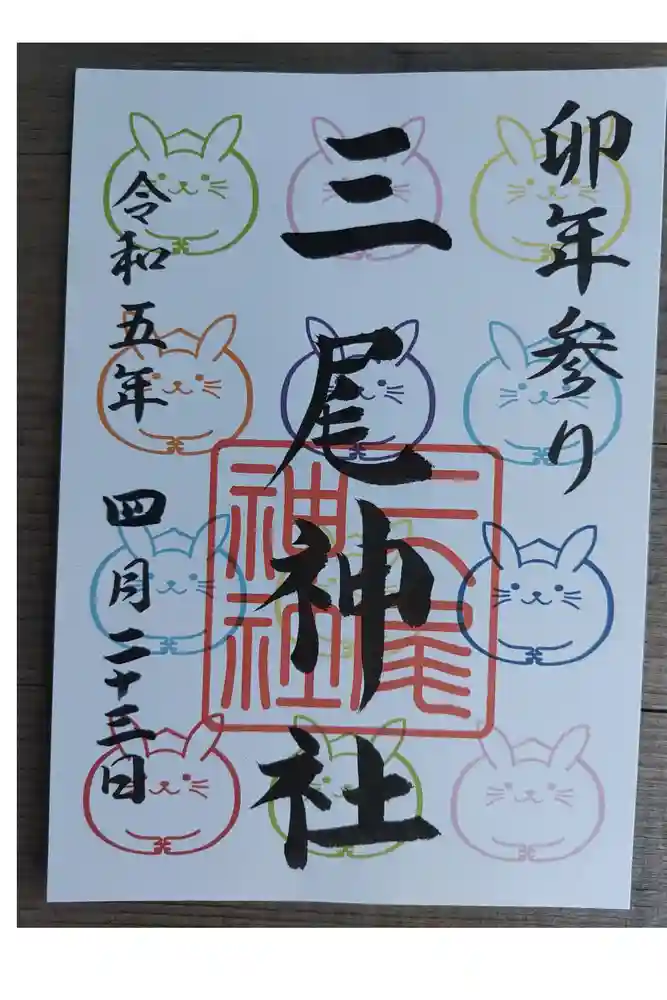 卯年参り
三尾神社
三尾
神社
令和五年 四月二十三日